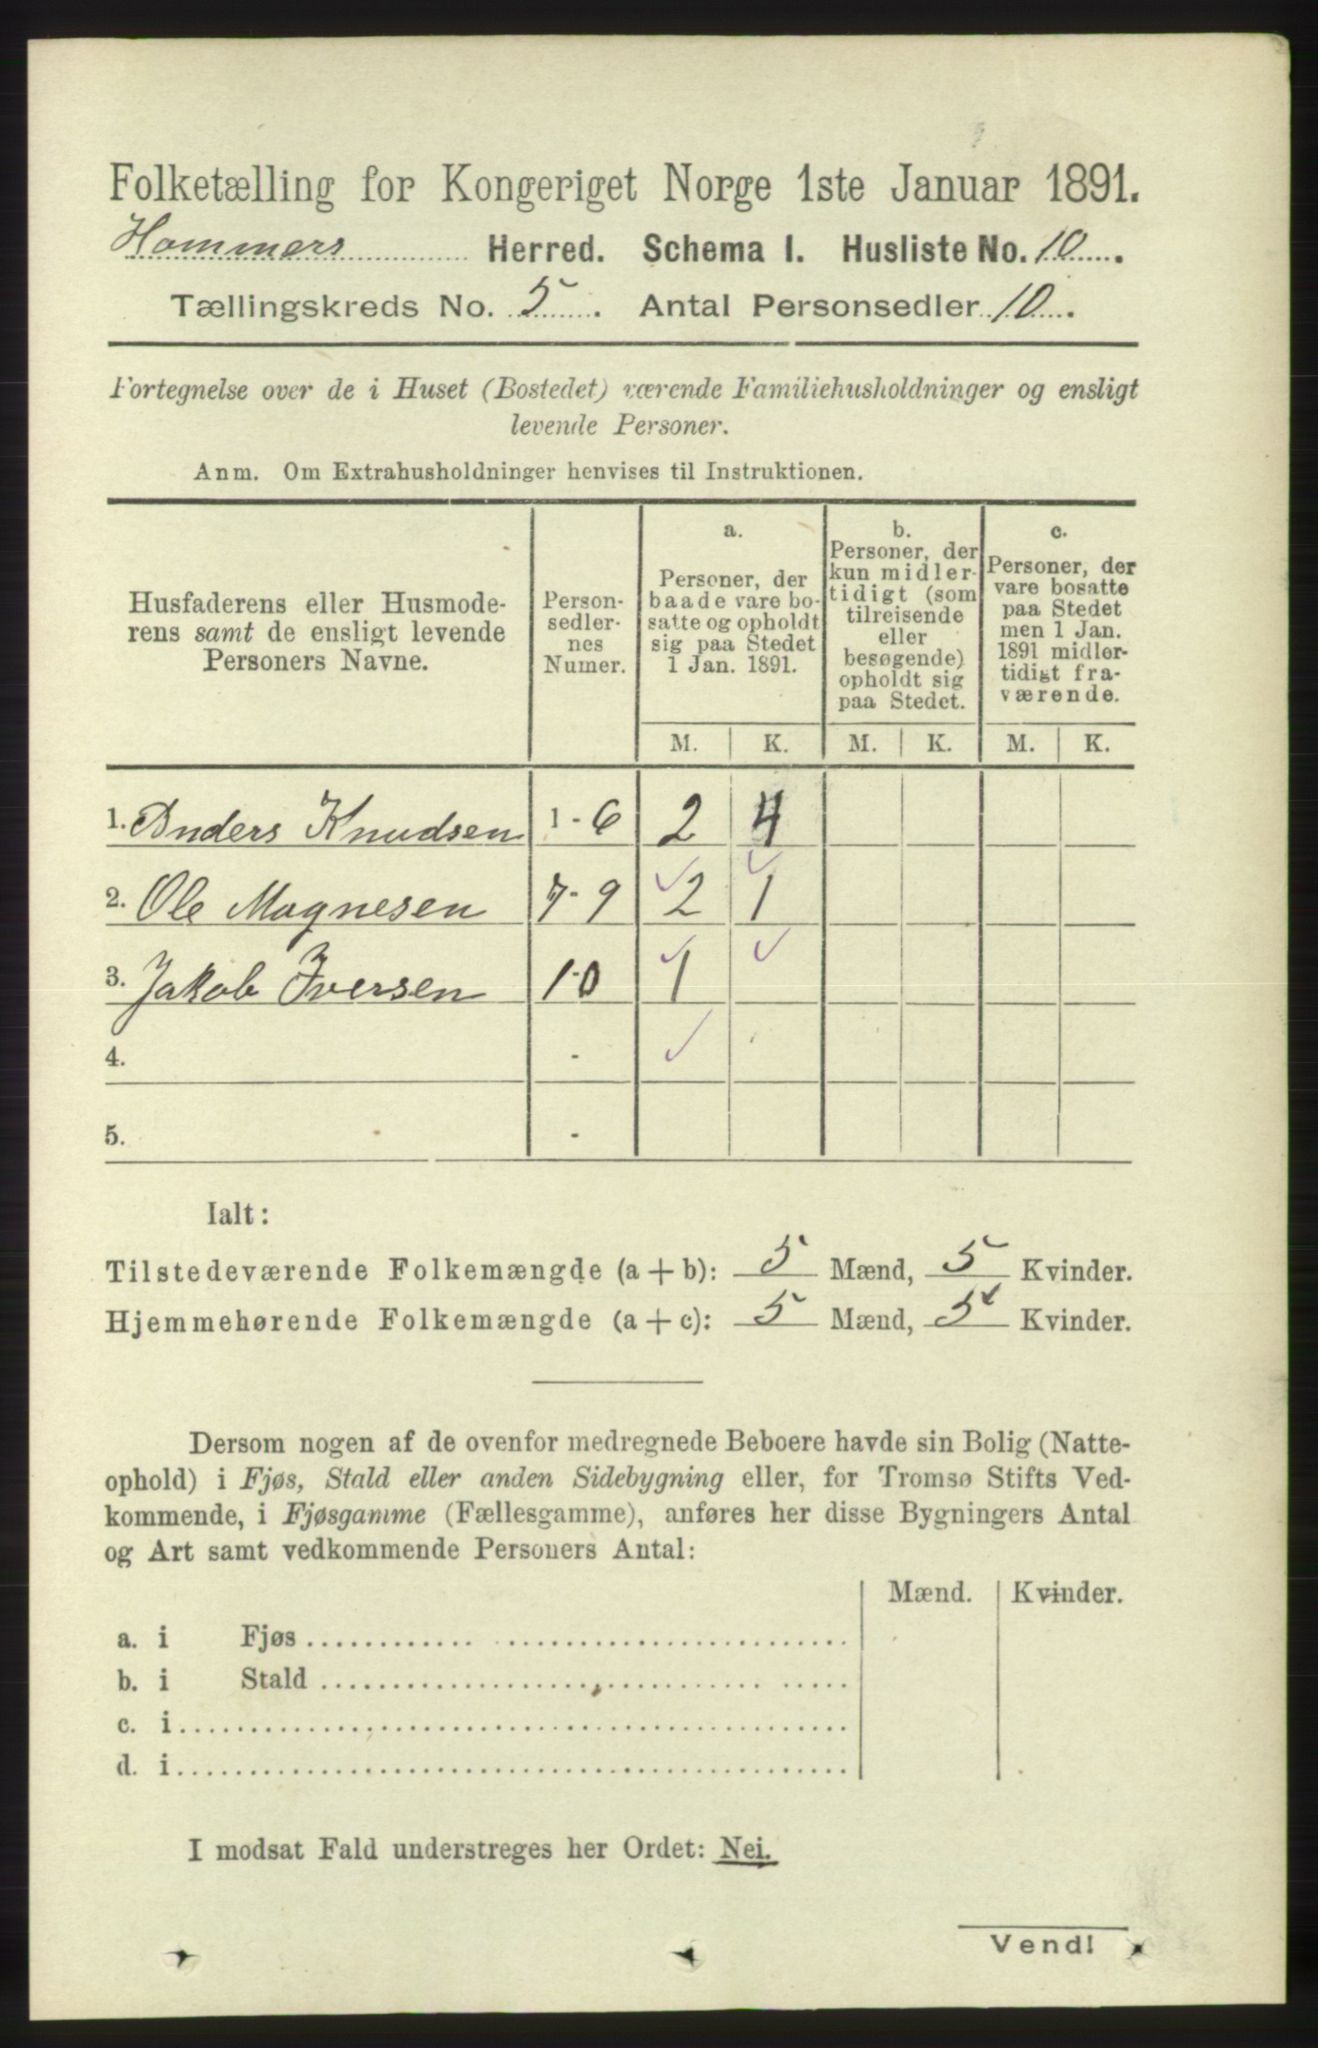 Folketælling for Kongeriget Norge 1ste Januar 1891.
Hammers Herred. Schema I. Husliste No. 10.
Tællingskreds No. 5. Antal Personsedler 10.
Fortegnelse over de i Huset (Bostedet) værende Familiehusholdninger og ensligt
levende Personer.
Anm. Om Extrahusholdninger henvises til Instruktionen.
Husfaderens eller Husmode-
rens samt de ensligt levende
Personers Navne.
Person-
sedler-
nes
Numer.
a.
Personer, der
baade vare bo-
satte og opholdt
sig paa Stedet
1 Jan. 1891.
b.
Personer, der
kun midler-
tidigt (som
tilreisende
eller
besøgende)
opholdt sig
paa Stedet.
c.
Personer, der
vare bosatte
paa Stedet
men 1 Jan.
1891 midler-
tidigt fra-
værende.
M. K. M. K. M. K.
1. Anders Knudsen 1-6 2 4
2. Ole Magnesen 7-9 2 1
3. Jakob Iversen 10 1
4. -
5. -
Ialt:
Tilstedeværende Folkemængde (a + b): 5 Mænd, 5 Kvinder.
Hjemmehørende Folkemængde (a + c): 5 Mænd, 5 Kvinder.
Dersom nogen af de ovenfor medregnede Beboere havde sin Bolig (Natte-
ophold) i Fjøs, Stald eller anden Sidebygning eller, for Tromsø Stifts Ved-
kommende, i Fjøsgamme (Fællesgamme), anføres her disse Bygningers Antal
og Art samt vedkommende Personers Antal:
Mænd. Kvinder.
a. i Fjøs
b. i Stald
c. i
d. i
I modsat Fald understreges her Ordet: Nei.
Vend!